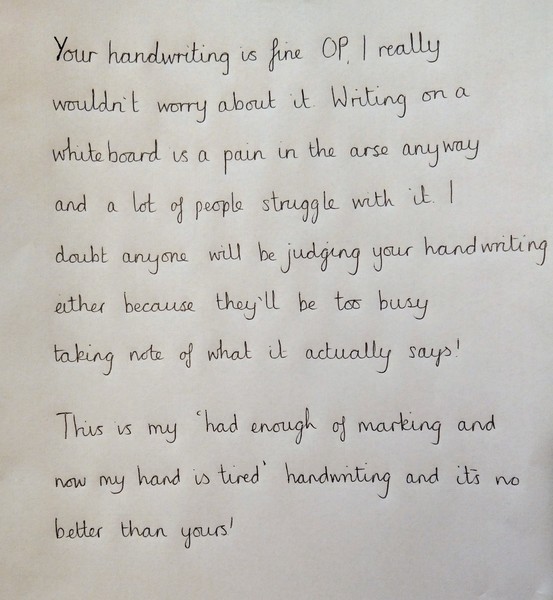 Your handwriting is fine OP, I really
wouldn't worry about it. Writing on a
whiteboard is a pain in the arse anyway
and a lot of people struggle with it. I
doubt anyone will be judging your handwriting
either because they'll be too busy
taking note of what it actually says!
This is my 'had enough of marking and
now my hand is tired' handwriting and it's no
better than yours!